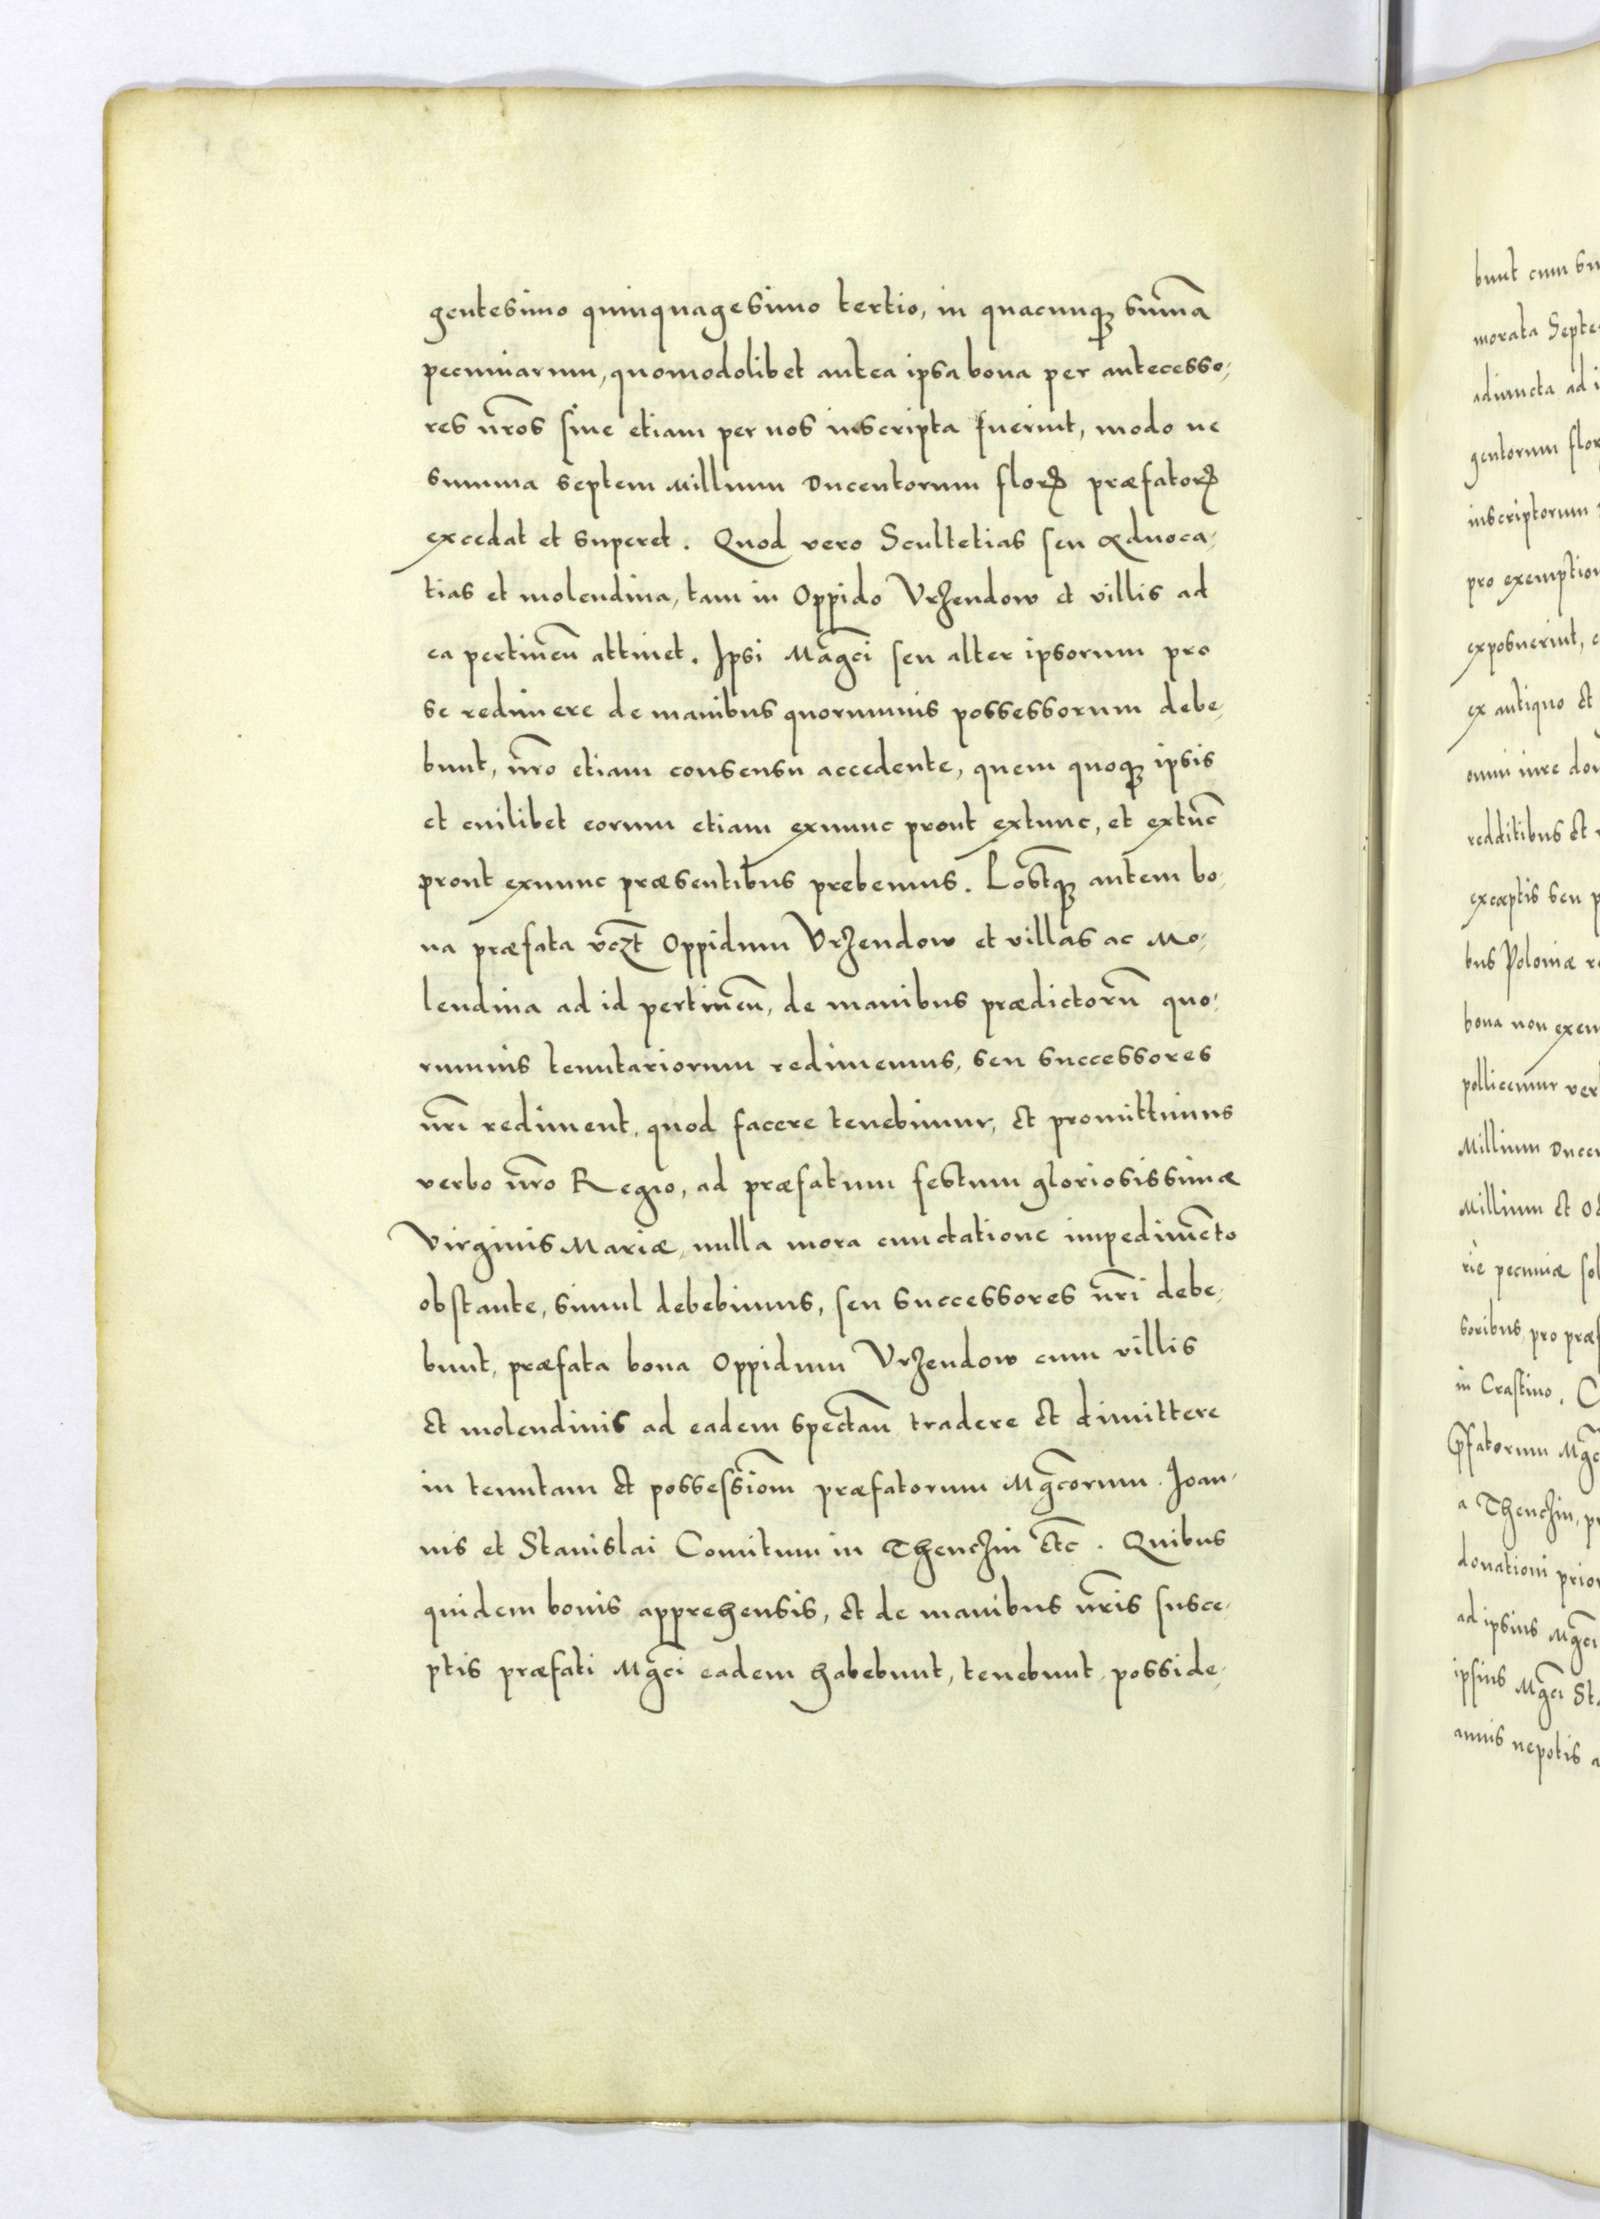 gentesimo quinquagesimo tertio, in quacunqꝫ sum̃a
pecuniarum, quomodolibet antea ipsa bona per antecesso,
res nr̃os siue etiam per nos inscripta fuerint, modo ne
summa septem Millium Ducentorum florꝝ præfatorꝝ
excedat et superet. Quod vero Scultetias seu aduoca,
tias et molendina, tam in Oppido Vrzendow et villis ad
ea pertineñ attinet. Ipsi Mãgci seu alter ipsorum pro
se redimere de manibus quorumuis possessorum debe,
bunt, nr̃o etiam consensu accedente, quem quoqꝫ ipsis
et cuilibet eorum etiam exnunc prout extunc, et extũc
prout exnunc præsentibus prebemus. Postqꝫ autem bo,
na præfata vcz̃t Oppidum Vrzendow et villas ac Mo,
lendina ad id pertineñ, de manibus prædictorũ quo,
rumuis tenutariorum redimemus, seu successores
nr̃i rediment, quod facere tenebimur, et promittimus
verbo nr̃o Regio, ad præfatum festum gloriosissimæ
Virginis Mariæ, nulla mora cunctatione impedimẽto
obstante, simul debebimus, seu successores nr̃i debe,
bunt, præfata bona Oppidum Vrzendow cum villis
et molendinis ad eadem spectañ tradere et dimittere
in tenutam et possessiom̃ præfatorum Mg̃corum Joan,
nis et Stanislai Comitum in Thenczin etc̃. Quibus
quidem bonis apprehensis, et de manibus nr̃is susce,
ptis præfati Mg̃ci eadem habebunt, tenebunt, posside,
bunt cum
morata
adiuncta ad
gentorum
inscriptorum
pro
exposuerint,
ex antiquo et
omni iure
redditibus et
exceptis seu
bus Poloniæ
bona non
pollicemur
Millium
Millium et
rie pecuniæ
soribus, pro
in Crastino.
p̃fatorum
a Thenczin,
donationi
ad ipsius Mg̃ci
ipsius Mg̃ci
annis nepotis